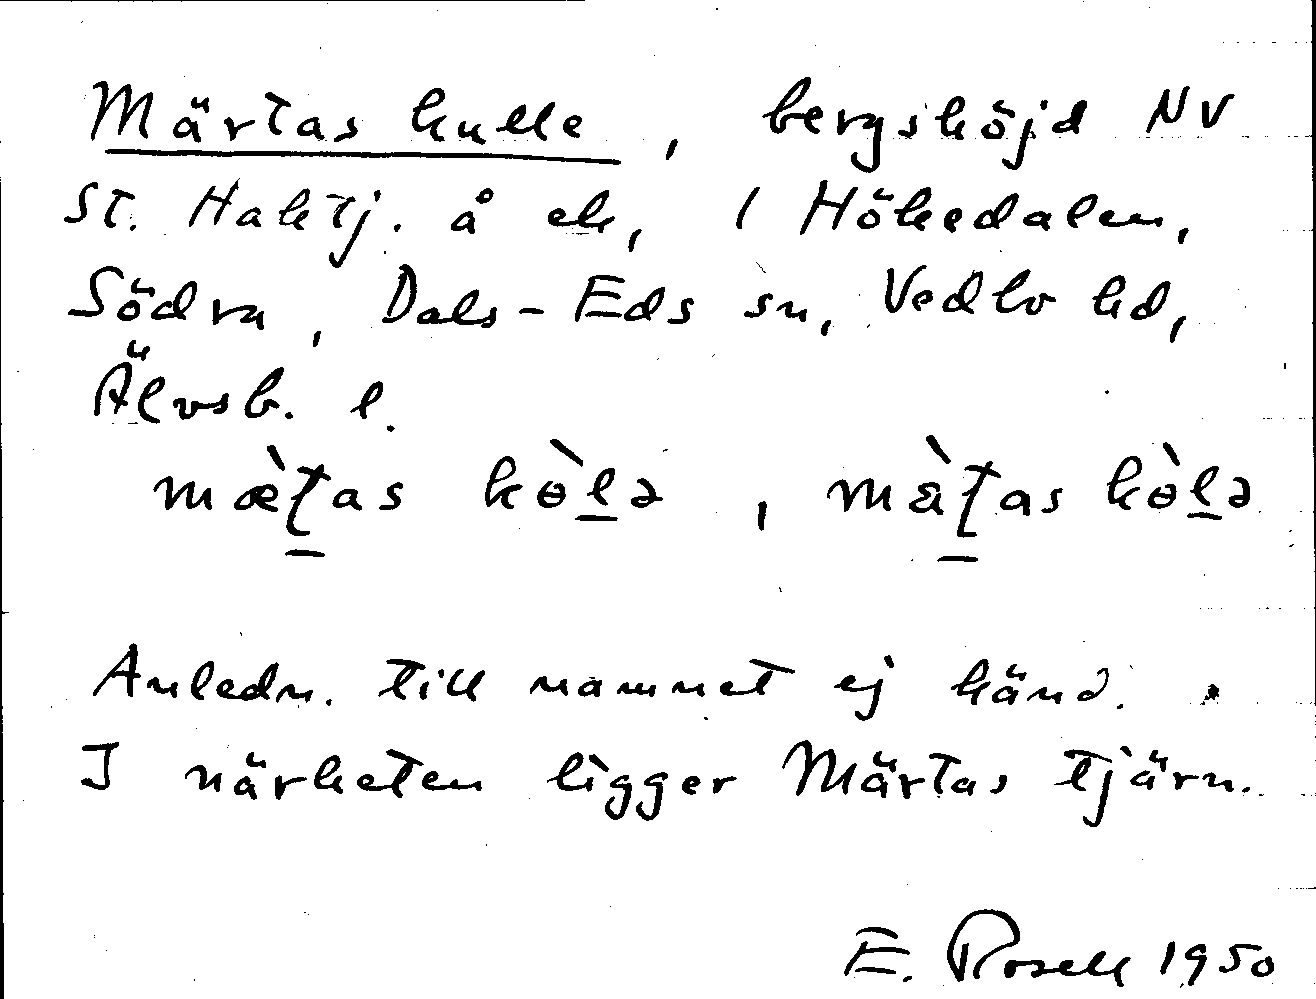 Märtas kulle, bergshöjd NV
St. Haktj. å ek, 1 Hökedalen,
Södra, Dals-Eds sn, Vedbo hd,
Älvsb. l.
mæ̀ʈas kɵ̀l̠ə, màʈas kɵ̀l̠ə
Anledn. till namnet ej känd.
I närheten ligger Märtas tjärn.
E. Rosell 1950